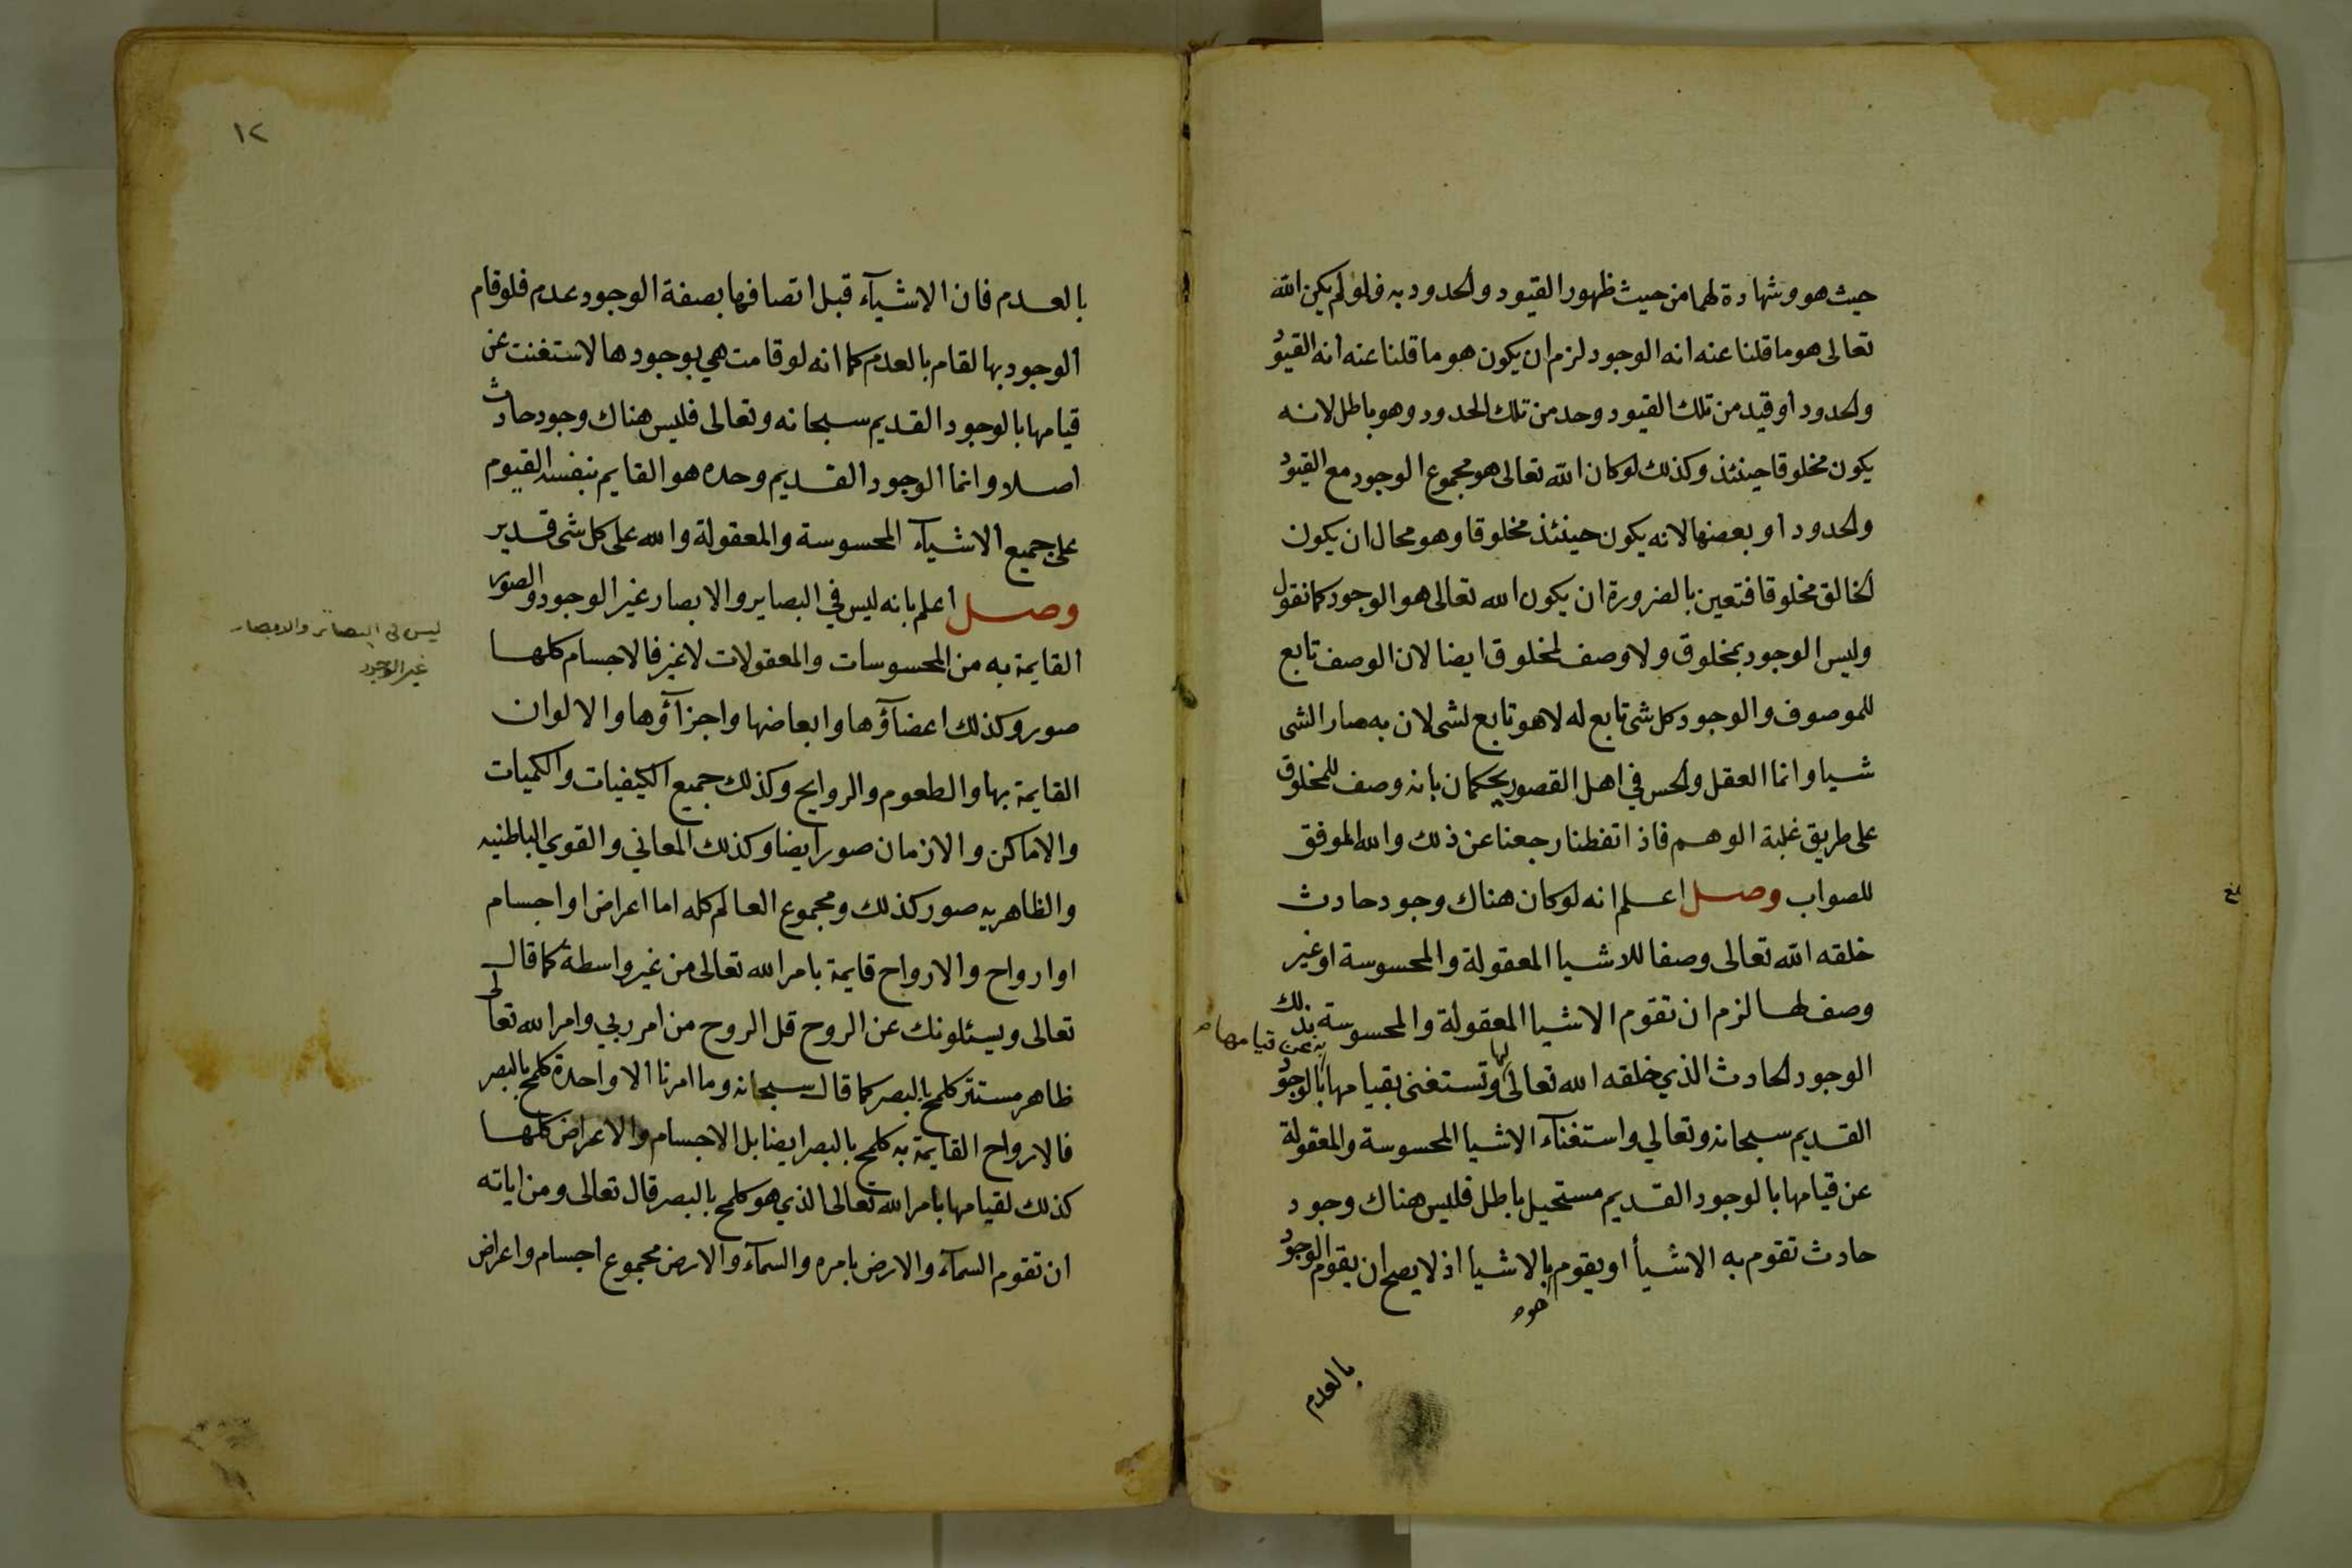 حيث هو وشهادة لهما من حيث ظهور القيود والحدود به فلو لم يكن الله
تعالى هو ما قلنا عنه انه الوجود لزم ان يكون هو ما قلنا عنه أنه القيود
والحدود أو قيد من تلك القيود وحد من تلك الحدود وهو باطل لانه
يكون مخلوقا حينئذ وكذلك لو كان الله تعالى هو مجموع الوجود مع القيود
والحدود او بعضها لانه يكون حينئذ مخلوقا وهو محال ان يكون
الخالق مخلوقا فتعين بالضرورة ان يكون الله تعالى هو الوجود كما نقول
وليس الوجود بمخلوق ولا وصف لمخلوق ايضا لان الوصف تابع
للموصوف والوجود كل شى تابع له لا هو تابع لشى لان به صار الشى
شيا وانما العقل والحس في اهل القصور يحكمان بانه وصف للمخلوق
على طريق غلبة الوهم فاذا تفطنا رجعنا عن ذلك والله الموفق
للصواب وصل اعلم انه لو كان هناك وجود حادث
خلقه الله تعالى وصفا للاشيا المعقولة والمحسوسة او غير
وصف لها لزم ان تقوم الاشيا المعقولة والمحسوسة بذلك
الوجود الحادث الذي خلقه الله تعالى لها وتستغنى بقيامها به عن قيامها بالوجود
القديم سبحانه وتعالي واستغناء الاشيا المحسوسة والمعقولة
عن قيامها بالوجود القديم مستحيل باطل فليس هناك وجود
حادث تقوم به الاشيأ او يقوم هو بالاشيا اذ لا يصح ان يقوم الوجود
بالعدم
١٢
بالعدم فان الاشيآء قبل اتصافها بصفة الوجود عدم فلو قام
الوجود بها لقام بالعدم كما انه لو قامت هي بوجودها لاستغنت عن
قيامها بالوجود القديم سبحانه وتعالى فليس هناك وجود حادث
اصلا وانما الوجود القديم وحده هو القايم بنفسه القيوم
على جميع الاشيآء المحسوسة والمعقولة والله على كل شى قدير
وصل أعلم بانه ليس في البصاير والابصار غير الوجود والصور
القايمة به من المحسوسات والمعقولات لا غير فالاجسام كلها
صور وكذلك اعضآؤها وابعاضها واجزآؤها والالوان
القايمة بها والطعوم والروايح وكذلك جميع الكيفيات والكميات
والاماكن والازمان صور ايضا وكذلك المعاني والقوي الباطنيه
والظاهريه صور كذلك ومجموع العالم كله اما اعراض او اجسام
او ارواح والارواح قايمة بامر الله تعالى من غير واسطة كما قال
تعالى ويسئلونك عن الروح قل الروح من امر ربي وامر الله تعالى
ظاهر مستتر كلمح بالبصر كما قال سبحانه وما امرنا الا واحدة كلمح بالبصر
فالارواح القايمة به كلمح بالبصر ايضا بل الاجسام والاعراض كلها
كذلك لقيامها بأمر الله تعالى الذي هو كلمح بالبصر قال تعالى ومن اياته
ان تقوم السمآء والارض بامره والسمآء والارض مجموع اجسام واعراض
ليس في البصائر والابصار
غير الوجود